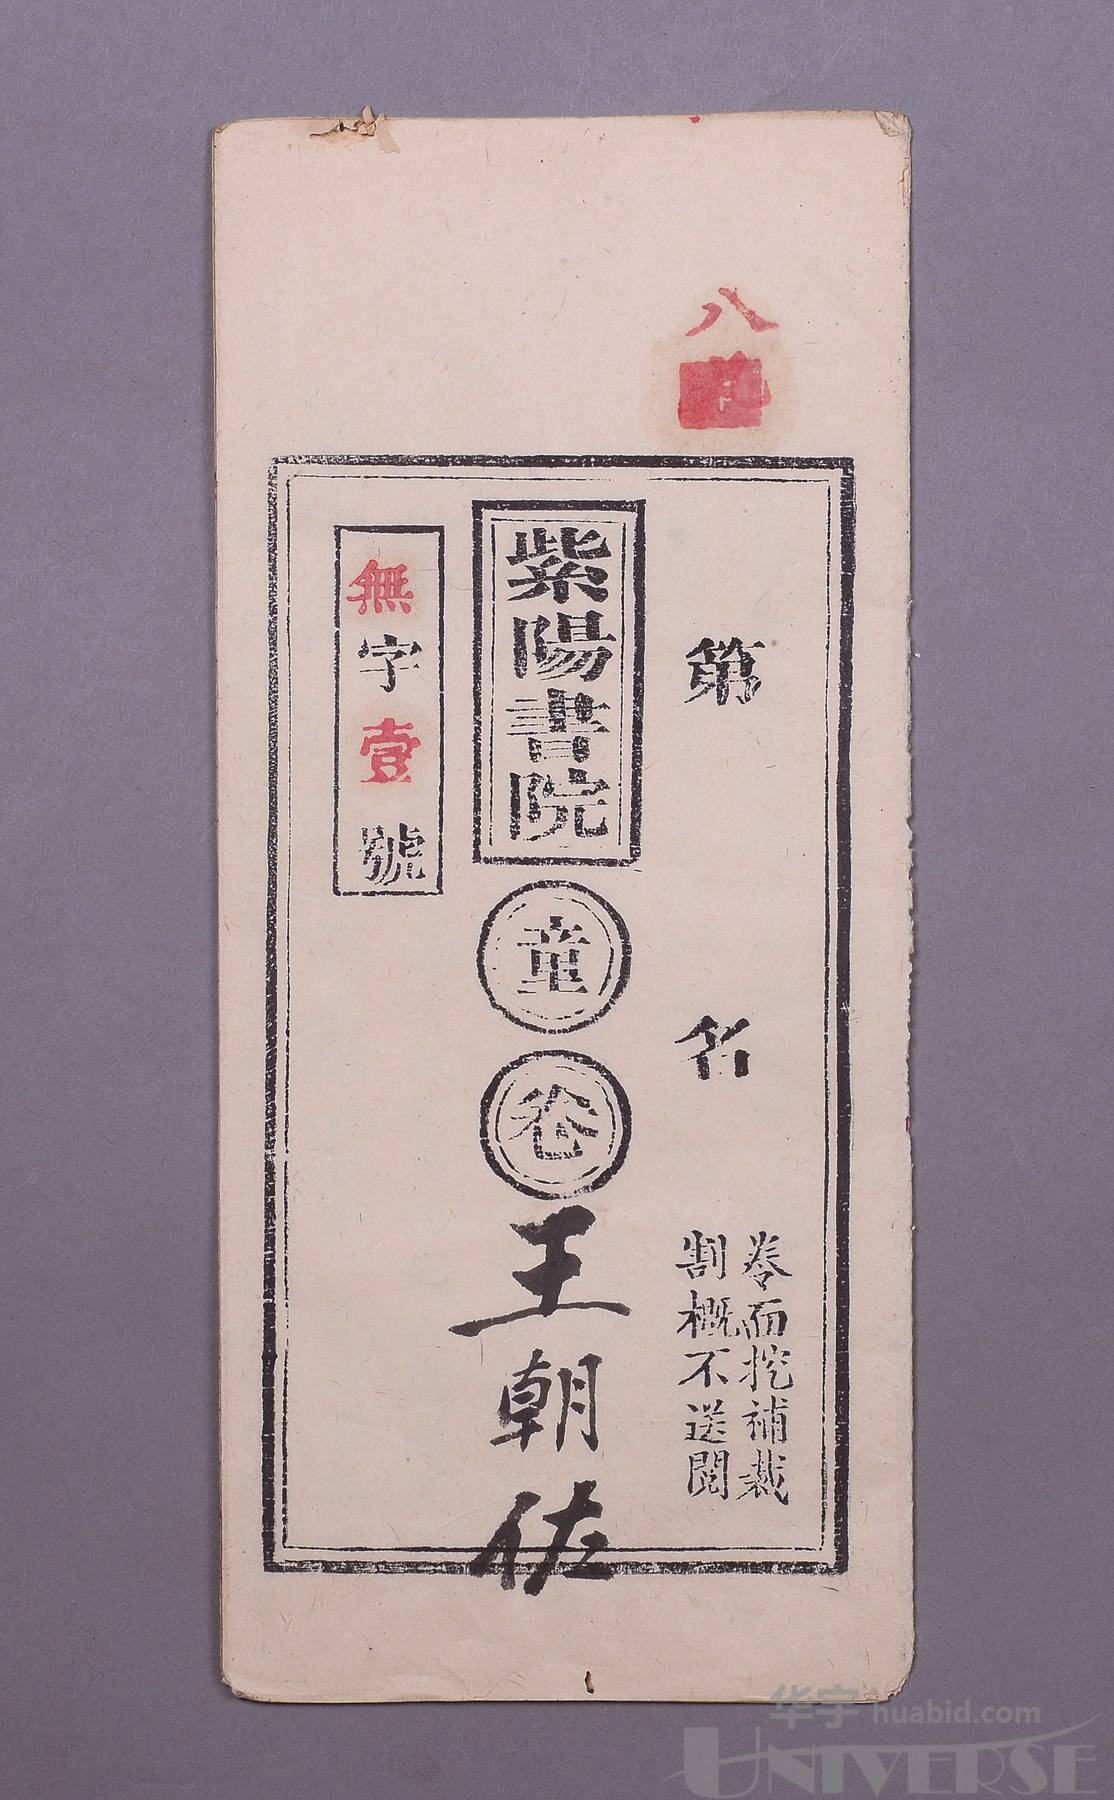 八
第 名
卷面挖補裁
割概不送閱
紫陽書院
童
卷
王朝佐
無字壹號
华宇 huabid.com
UNIVERSE